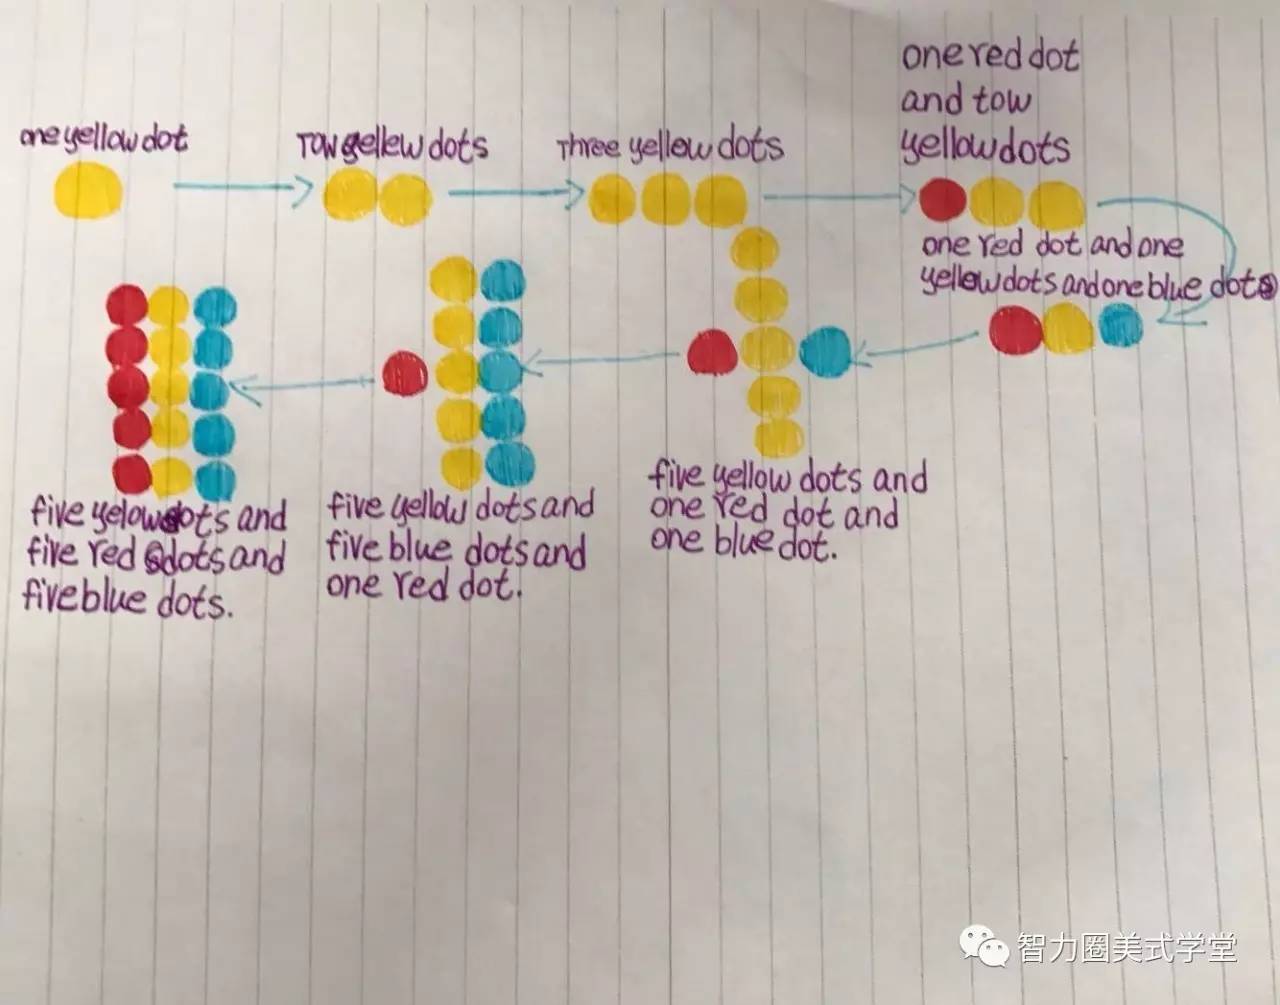 one yellow dot
Tow yellew dots
Three yellow dots
one red dot
and tow
yellow dots
one red dot and one
yellow dots and one blue dots
five yellow dots and
one red dot and
one blue dot.
five yellow dots and
five blue dots and
one red dot.
five yelow dots and
five red dots and
five blue dots.
智力圈美式学堂